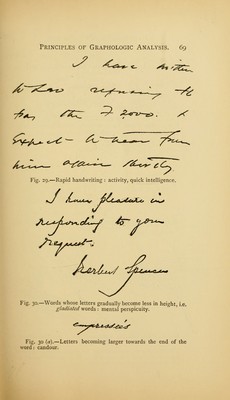 PRINCIPLES OF GRAPHOLOGIC ANALYSIS. 69
I have written
to
for the 7.2000. I
expect to hear from
him again shortly
Fig. 29.—Rapid handwriting : activity, quick intelligence.
I have pleasure in
responding to your
request.
Herbert Spencer
Fig. 30.—Words whose letters gradually become less in height, i.e.
gladiated words : mental perspicuity.
empressés
Fig. 30 (a).—Letters becoming larger towards the end of the
word : candour.